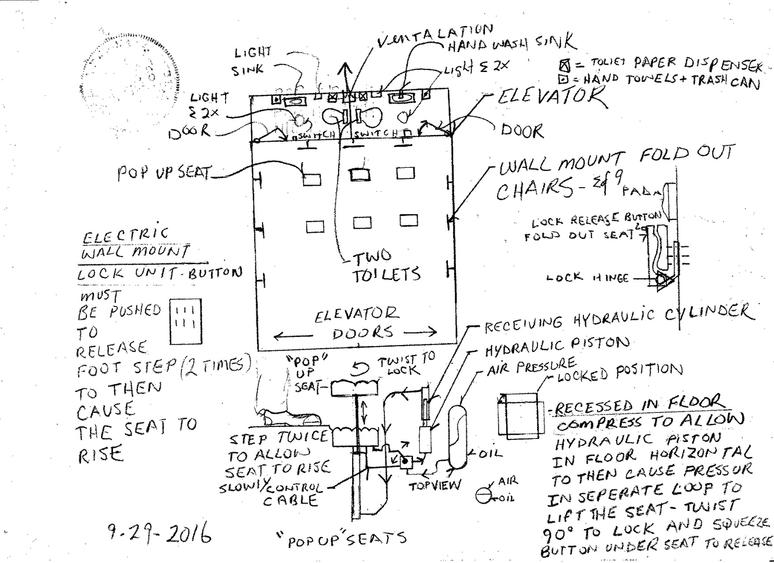 VENTALATION
LIGHT
HAND WASH SINK
SINK
LIGHT & 2X
= TOLIET PAPER DISPENSER
= HAND TOWELS + TRASH CAN
LIGHT
& 2X
ELEVATOR
DOOR
SWITCH
SWITCH
DOOR
POP UP SEAT
WALL MOUNT FOLD OUT
CHAIRS - & of 9
PAD
LOCK RELEASE BUTTON
FOLD OUT SEAT
LOCK HINGE
ELECTRIC
WALL MOUNT
LOCK UNIT-BUTTON
MUST
BE PUSHED
TO
RELEASE
FOOT STEP (2 TIMES)
TO THEN
CAUSE
THE SEAT TO
RISE
TWO
TOILETS
ELEVATOR
DOORS
RECEIVING HYDRAULIC CYLINDER
HYDRAULIC PISTON
AIR PRESSURE
LOCKED POSITION
"POP"
UP
SEAT
TWIST TO
LOCK
STEP TWICE
TO ALLOW
SEAT TO RISE
SLOWLY
CONTROL
CABLE
OIL
TOP VIEW
AIR
OIL
RECESSED IN FLOOR
COMPRESS TO ALLOW
HYDRAULIC PISTON
IN FLOOR HORIZONTAL
TO THEN CAUSE PRESSUR
IN SEPERATE LOOP TO
LIFT THE SEAT - TWIST
90° TO LOCK AND SQUEEZE
BUTTON UNDER SEAT TO RELEASE
9-29-2016
"POP UP" SEATS